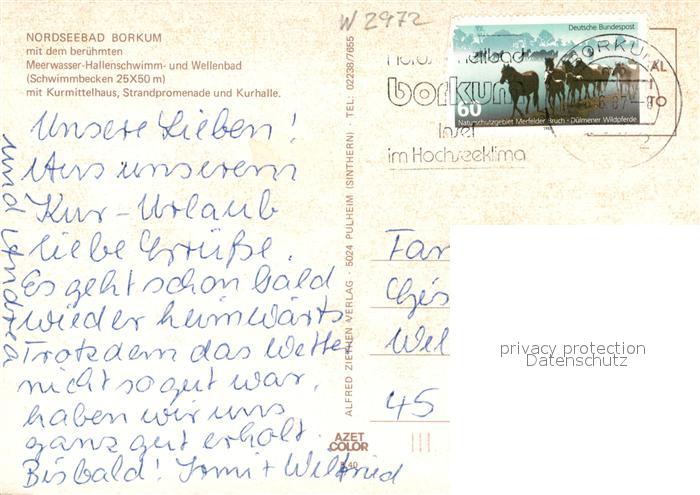 W 2972
NORDSEEBAD BORKUM
mit dem berühmten
Meerwasser-Hallenschwimm- und Wellenbad
(Schwimmbecken 25X50 m)
mit Kurmittelhaus, Strandpromenade und Kurhalle.
Unsere Lieben!
Aus unserem
Kur-Urlaub
liebe Grüße.
Es geht schon bald
wieder heimwärts
Trotzdem das Wetter
nicht so gut war,
haben wir uns
ganz gut erholt.
Bis bald! Irmi + Wilfried
und Andrea
ALFRED ZIETHEN VERLAG · 5024 PULHEIM (SINTHERN) · TEL.: 02238/7655
AZET
COLOR
Deutsche Bundespost
60
Naturschutzgebiet Merfelder Bruch · Dülmener Wildpferde
BORKUM
borkum
Insel
im Hochseeklima
Fam
Ges
Wel
45
privacy protection
Datenschutz